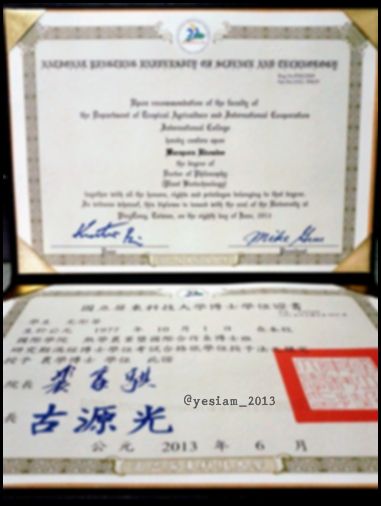 NATIONAL PINGTUNG UNIVERSITY OF SCIENCE AND TECHNOLOGY
Upon recommendation of the faculty of
the Department of Tropical Agriculture and International Cooperation
International College
hereby confers upon
the degree of
Doctor of Philosophy
(Plant Biotechnology)
together with all the honors, rights and privileges belonging to that degree.
In witness whereof, this diploma is issued with the seal of the University at
PingTung, Taiwan, on the eighth day of June, 2013
Dean
President
國立屏東科技大學博士學位證書
學生
生於公元 1977 年 10 月 1 日
國際學院 熱帶農業暨國際合作系博士班
研究期滿經博士學位考試合格依學位授予法之規定
授予 農學博士 學位 此證
院長
長 古源光
@yesiam_2013
公元 2013 年 6 月